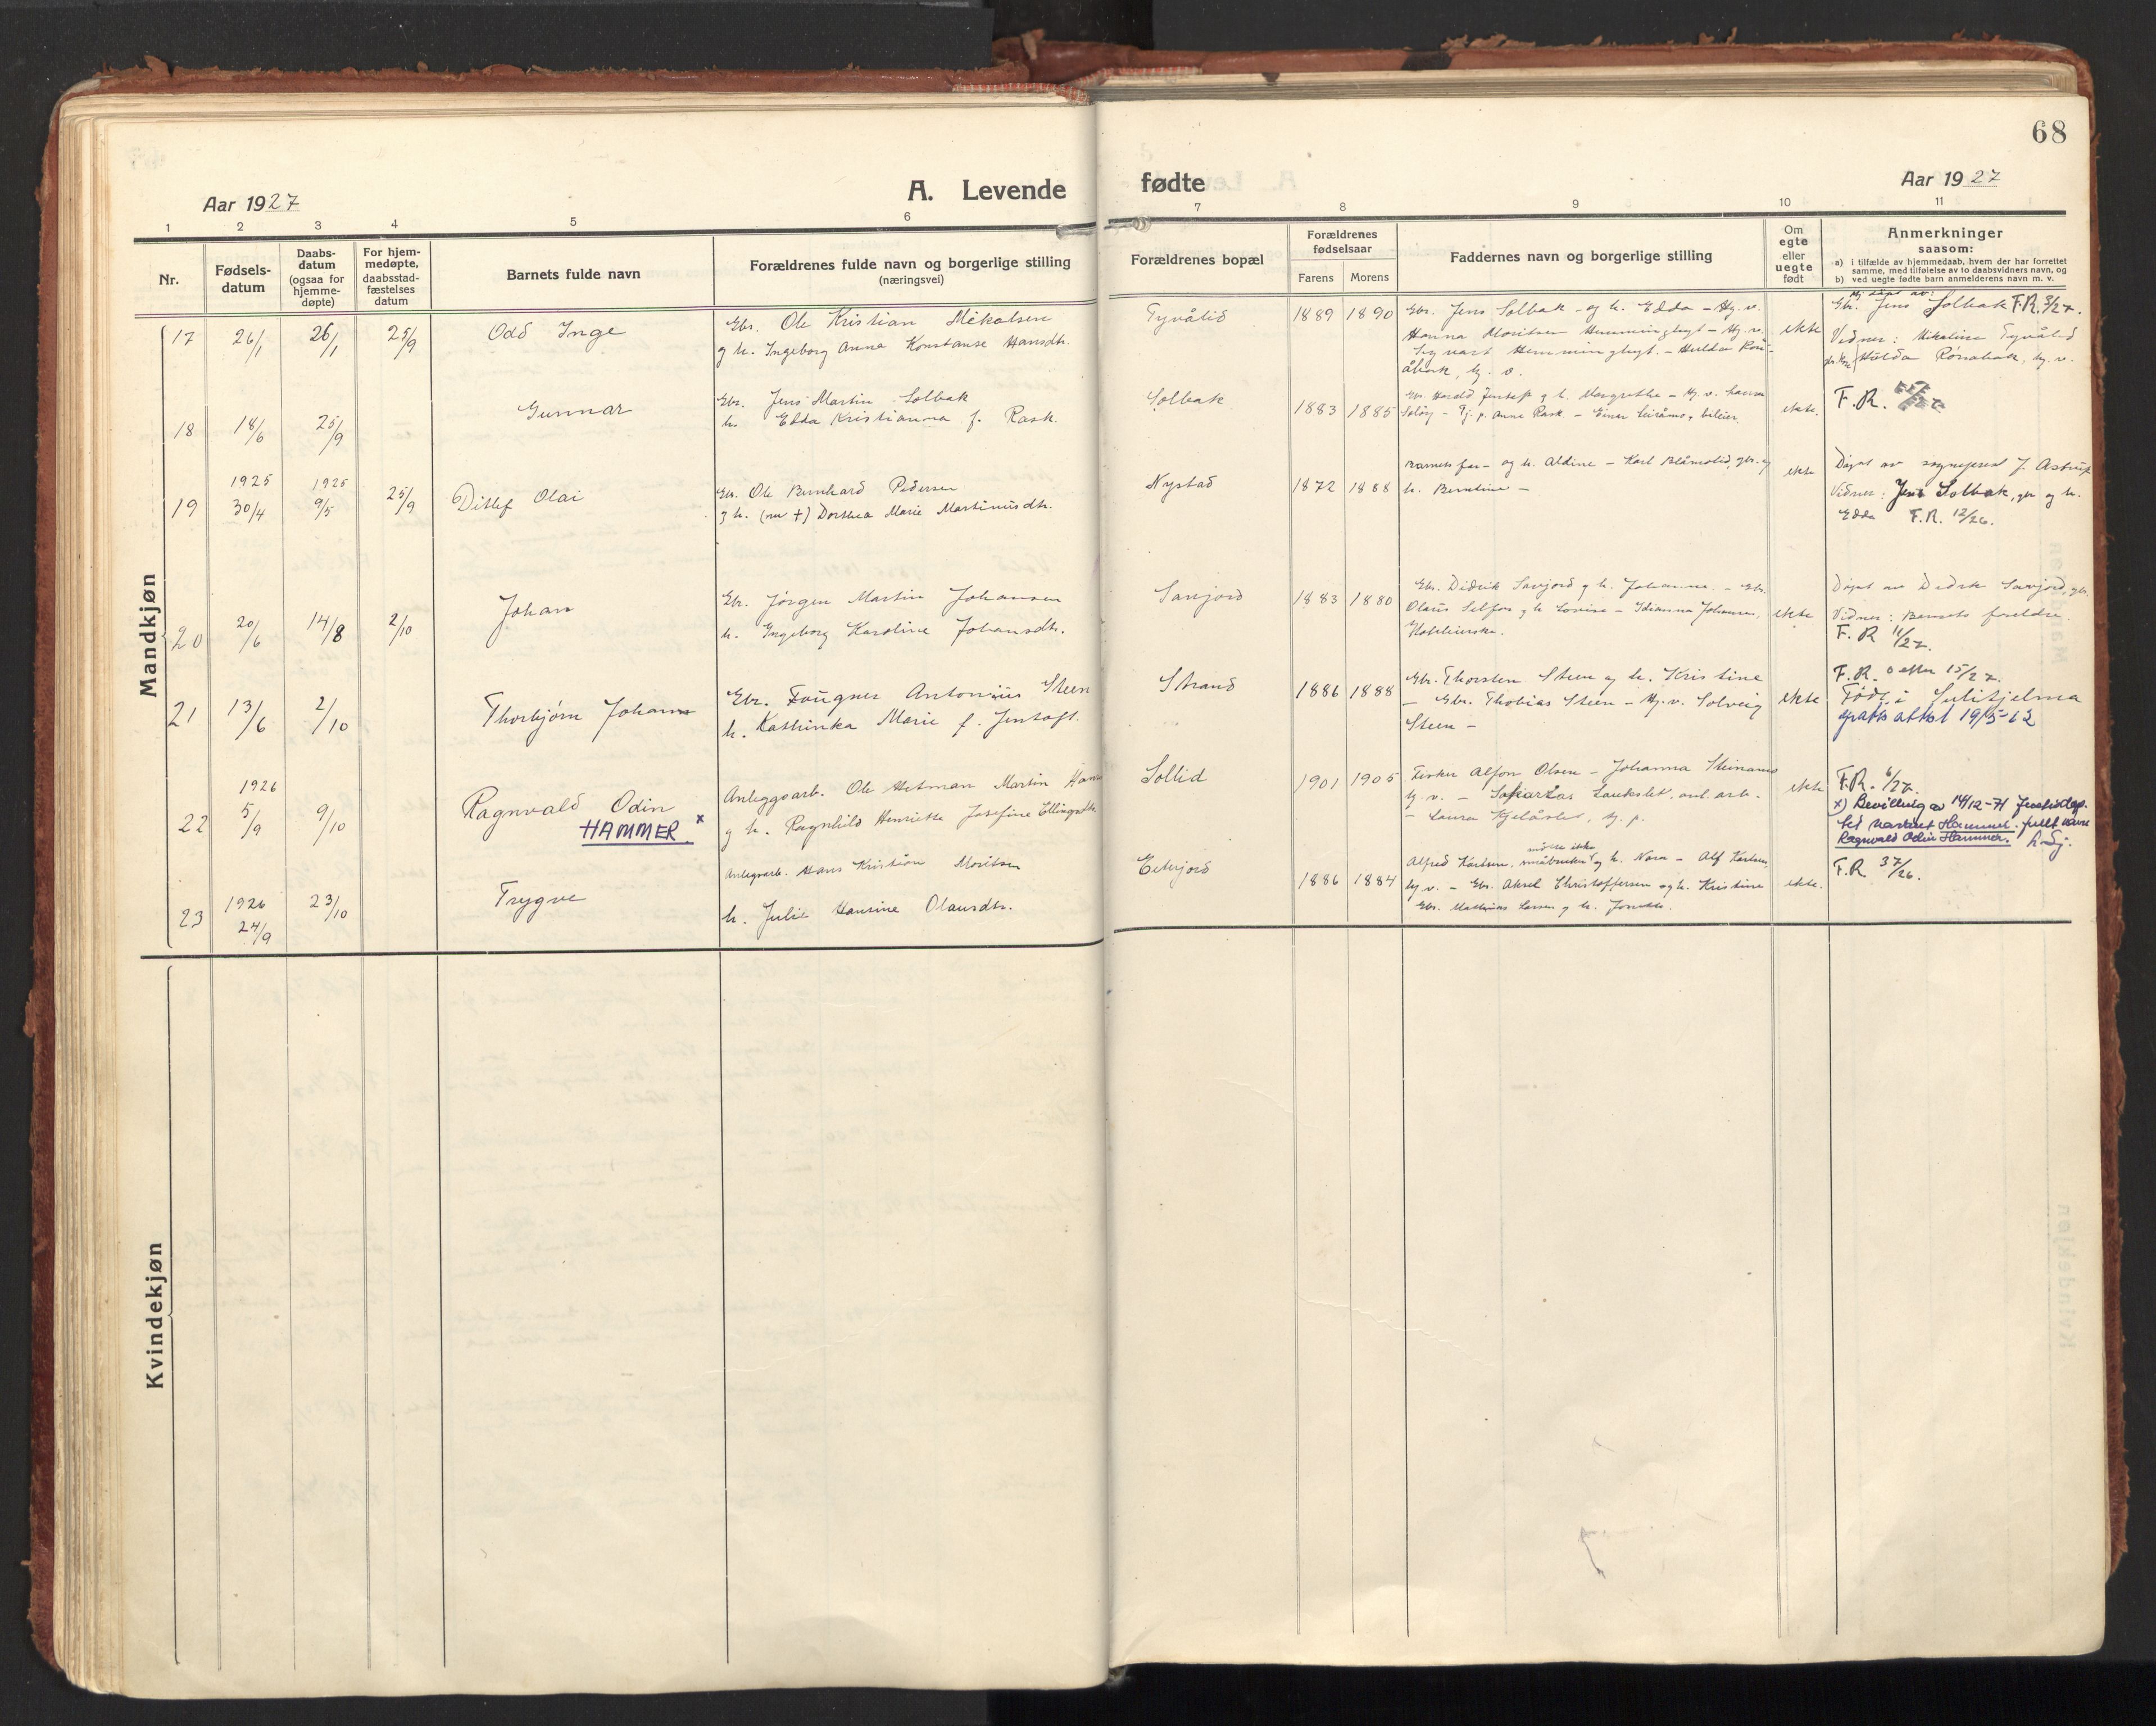 68
Aar 1927
A. Levende
fødte
Aar 1927
1 2 3 4 5 6 7 8 9 10 11
Nr.
Fødsels-
datum
Daabs-
datum
(ogsaa for
hjemme-
døpte)
For hjem-
medøpte,
daabsstad-
fæstelses
datum
Barnets fulde navn
Forældrenes fulde navn og borgerlige stilling
(næringsvei)
Forældrenes bopæl
Forældrenes
fødselsaar
Farens Morens
Faddernes navn og borgerlige stilling
Om
egte
eller
uegte
født
Anmerkninger
saasom:
a) i tilfælde av hjemmedaab, hvem der har forrettet
samme, med tilføielse av to daabsvidners navn, og
b) ved uegte fødte barn anmelderens navn m. v.
Mandkjøn
17 26/1 26/1 25/9 Odd Inge
Gbr. Ole Kristian Mikalsen
g h. Ingeborg Anna Konstanse Hansdtr.
Tyvålid 1889 1890
Gbr. Jens Solbak - og h. Edda - Ug. v.
Hanna Moritsen Hemminghyt - Ug. v.
Signart Hemminghyt. - Hulda
ekte
Gbr. Jens Solbak F.R. 3/27.
Vidner: Mikaline Tyvålid
Hulda
18 18/6 25/9 Gunnar
Gbr. Jens Martin Solbak
h. Edda Kristianna f. Rask.
Solbak 1883 1885
Gbr. Harald Jentoft g h. Margrethe - Ug. v.
Tj. p. Anna Rask - Einar
ekte.
F.R.
19 1925 30/4 1925 9/5 25/9 Ditlef Olai
Gbr. Ole Bernhard Pedersen
g h. (nu +) Dorthea Marie Martinusdtr.
Nystad 1872 1888
Barnets far - og h. Aldine - Karl Blåmolid, gbr. og
h. Berntine -
ekte
Døpt av sogneprest J. Astrup
Vidner: Jens Solbak, gbr og h.
Edda F.R. 12/26.
20 20/6 14/8 2/10 Johan
Gbr. Jørgen Martin Johansen
h. Ingeborg Karoline Johansdtr.
Saxjord 1883 1880
Gbr. Didrik Saxjord g h. Johanna. - Gbr.
Olaus Selfors g h Lovine - Idianna Johansen,
ekte
Døpt av Didrik Saxjord, gbr.
Vidner: Barnets foreldre.
F.R 11/27.
21 13/6 2/10 Thorbjørn Johan
Gbr. Fougner Antonius Steen
h. Kathinka Marie f. Jentoft.
Strand 1886 1888
Gbr. Thorsten Steen og h. Kristine
- Gbr. Thobias Steen - Ug. v. Solveig
Steen -
ekte
F.R. 15/27.
Født i Sulitjelma
gratis attest 19/5-62
22 1926 5/9 9/10 Ragnvald Odin
HAMMER x
Anleggsarb. Ole Hetman Martin
g h. Ragnhild Henriette Josefine Ellingsdtr.
Sollid 1901 1905
Fisker Alfon Olsen - Johanna Steinamo
Ug. v. - Sakarias
- Laura
ekte
F.R. 6/27.
x) Bevilling av 14/12-71 Justisdep.
til navnet Hammer. fullt navn
Ragnvald Odin Hammer.
23 1926 24/9 23/10 Trygve
Anlegsarb. Hans Kristian Moritsen
h. Julie Hansine Olausdtr.
Eiterjord 1886 1884
møtte ikke
Alfred Karlsen, småbruker og h. Nora - Alf Karlsen,
Ug. v. - Gbr. Aksel Christoffersen og h. Kristine
Gbr. Mathias Larsen g h.
ekte.
F.R. 37/26.
Kvindekjøn